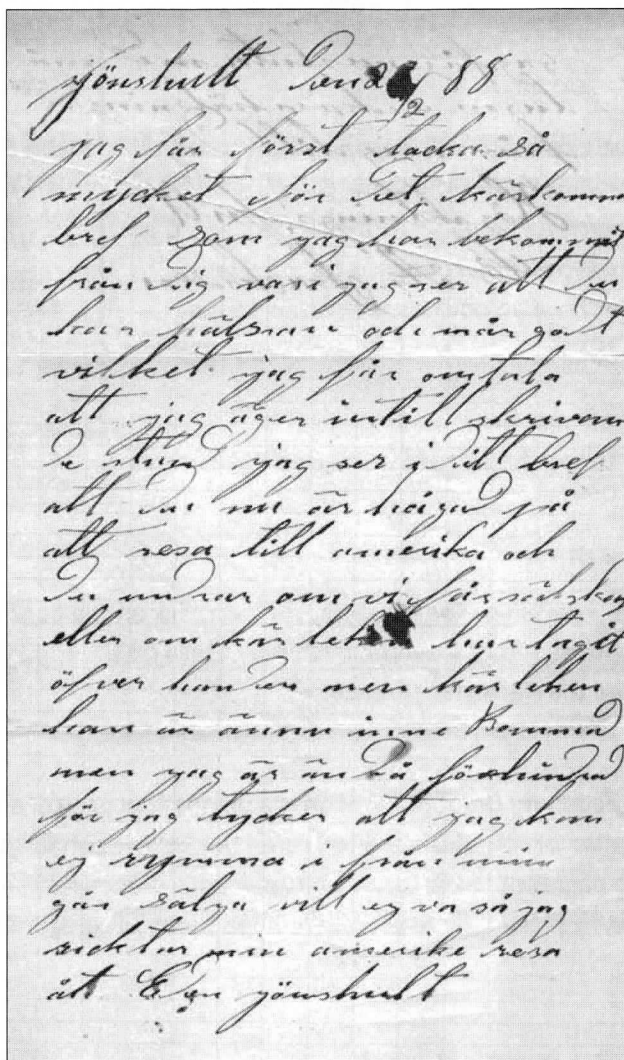 Jönshult den 2/2 88
jag får först tacka så
mycket för det kärkommna
bref som jag har bekommit
från dig vari jag ser att du
har hälsan och mår godt
vilket jag får omtala
att jag äger intill skrivan
de stund jag ser i dit bref
att du nu är hågad på
att resa till amerika och
du undrar om vi får sälskap
eller om kärleken har tagit
öfver handen men kärleken
han är ännu inne
men jag är ändå förhindrad
för jag tycker att jag kan
ej rymma i från min
går sälja vill ej va så jag
sicktar min amerike resa
åt jönshult